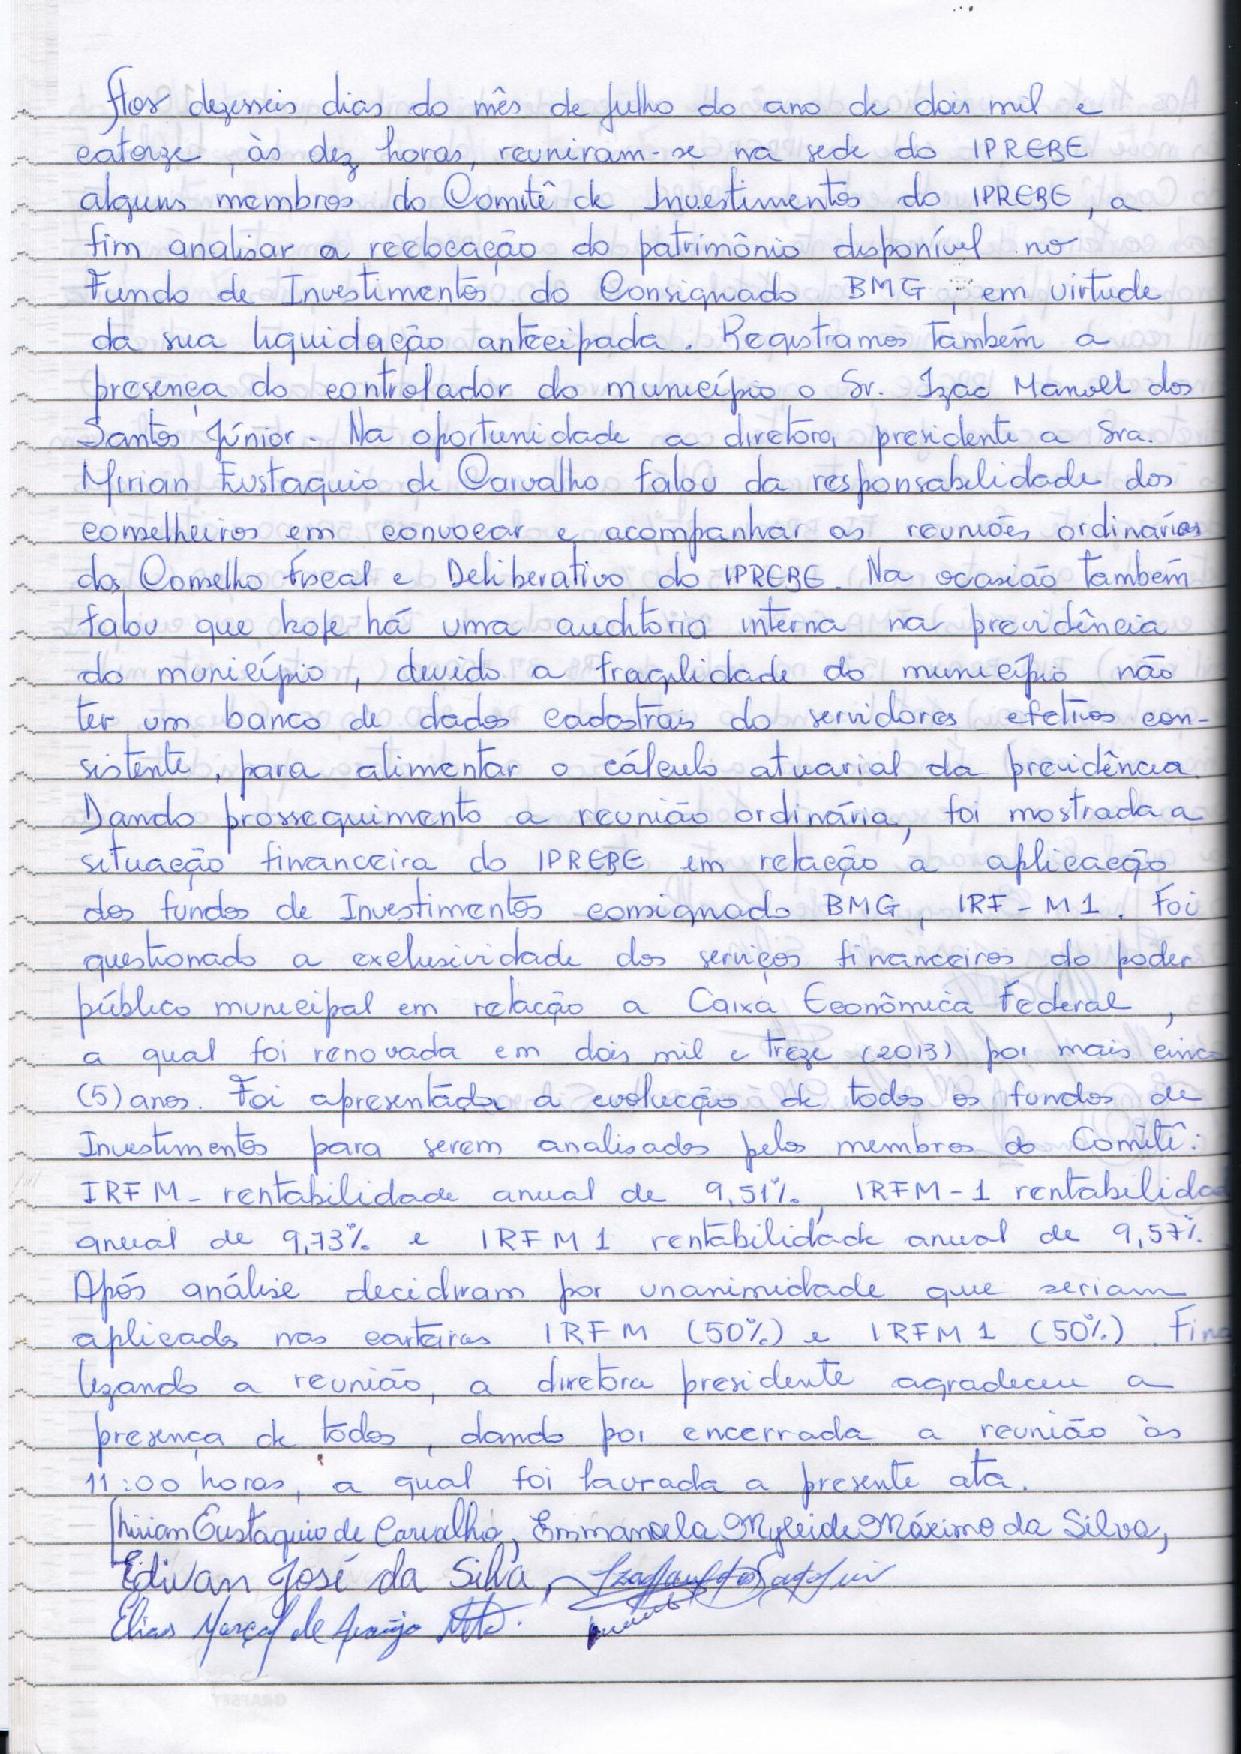 Aos dezesseis dias do mês de Julho do ano de dois mil e
catorze, às dez horas, reuniram-se na sede do IPREBE
alguns membros do Comitê de Investimentos do IPREBE, a
fim analisar a realocação do patrimônio disponível no
Fundo de Investimentos do Consignado BMG em virtude
da sua liquidação antecipada. Registramos também a
presença do controlador do município o Sr. Izac Manoel dos
Santos Júnior - Na oportunidade a diretora presidente a Sra.
Mirian Eustaquio de Carvalho falou da responsabilidade dos
conselheiros em convocar e acompanhar as reuniões ordinárias
do Conselho Fiscal e Deliberativo do IPREBE. Na ocasião também
falou que hoje há uma auditoria interna na previdência
do município, devido a fragilidade do município não
ter um banco de dados cadastrais do servidores efetivos con-
sistente, para alimentar o cálculo atuarial da previdência.
Dando prosseguimento a reunião ordinária, foi mostrada a
situação financeira do IPREBE em relação a aplicação
dos fundos de Investimentos consignado BMG, IRF-M1. Foi
questionado a exclusividade dos serviços financeiros do poder
público municipal em relação a Caixa Econômica Federal,
a qual foi renovada em dois mil e treze (2013) por mais cinco
(5) anos. Foi apresentada a evolução de todos os fundos de
Investimentos para serem analisados pelos membros do Comitê:
IRFM - rentabilidade anual de 9,51%, IRFM-1 rentabilidad
anual de 9,73% e IRFM1 rentabilidade anual de 9,57%.
Após análise decidiram por unanimidade que seriam
aplicado nas carteiras IRFM (50%) e IRFM1 (50%). Fina
lizando a reunião, a diretora presidente agradeceu a
presença de todos, dando por encerrada a reunião às
11:00 horas, a qual foi lavrada a presente ata.
Miriam Eustaquio de Carvalho, Emmanoela Myleide Máximo da Silva,
Edivan José da Silva,
Elias Marçal de Araújo